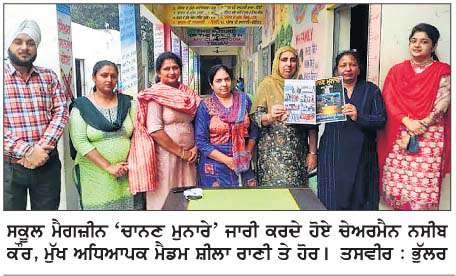 ਸਕੂਲ ਮੈਗਜ਼ੀਨ ‘ਚਾਨਣ ਮੁਨਾਰੇ’ ਜਾਰੀ ਕਰਦੇ ਹੋਏ ਚੇਅਰਮੈਨ ਨਸੀਬ
ਕੌਰ, ਮੁੱਖ ਅਧਿਆਪਕ ਮੈਡਮ ਸ਼ੀਲਾ ਰਾਣੀ ਤੇ ਹੋਰ। ਤਸਵੀਰ : ਭੁੱਲਰ